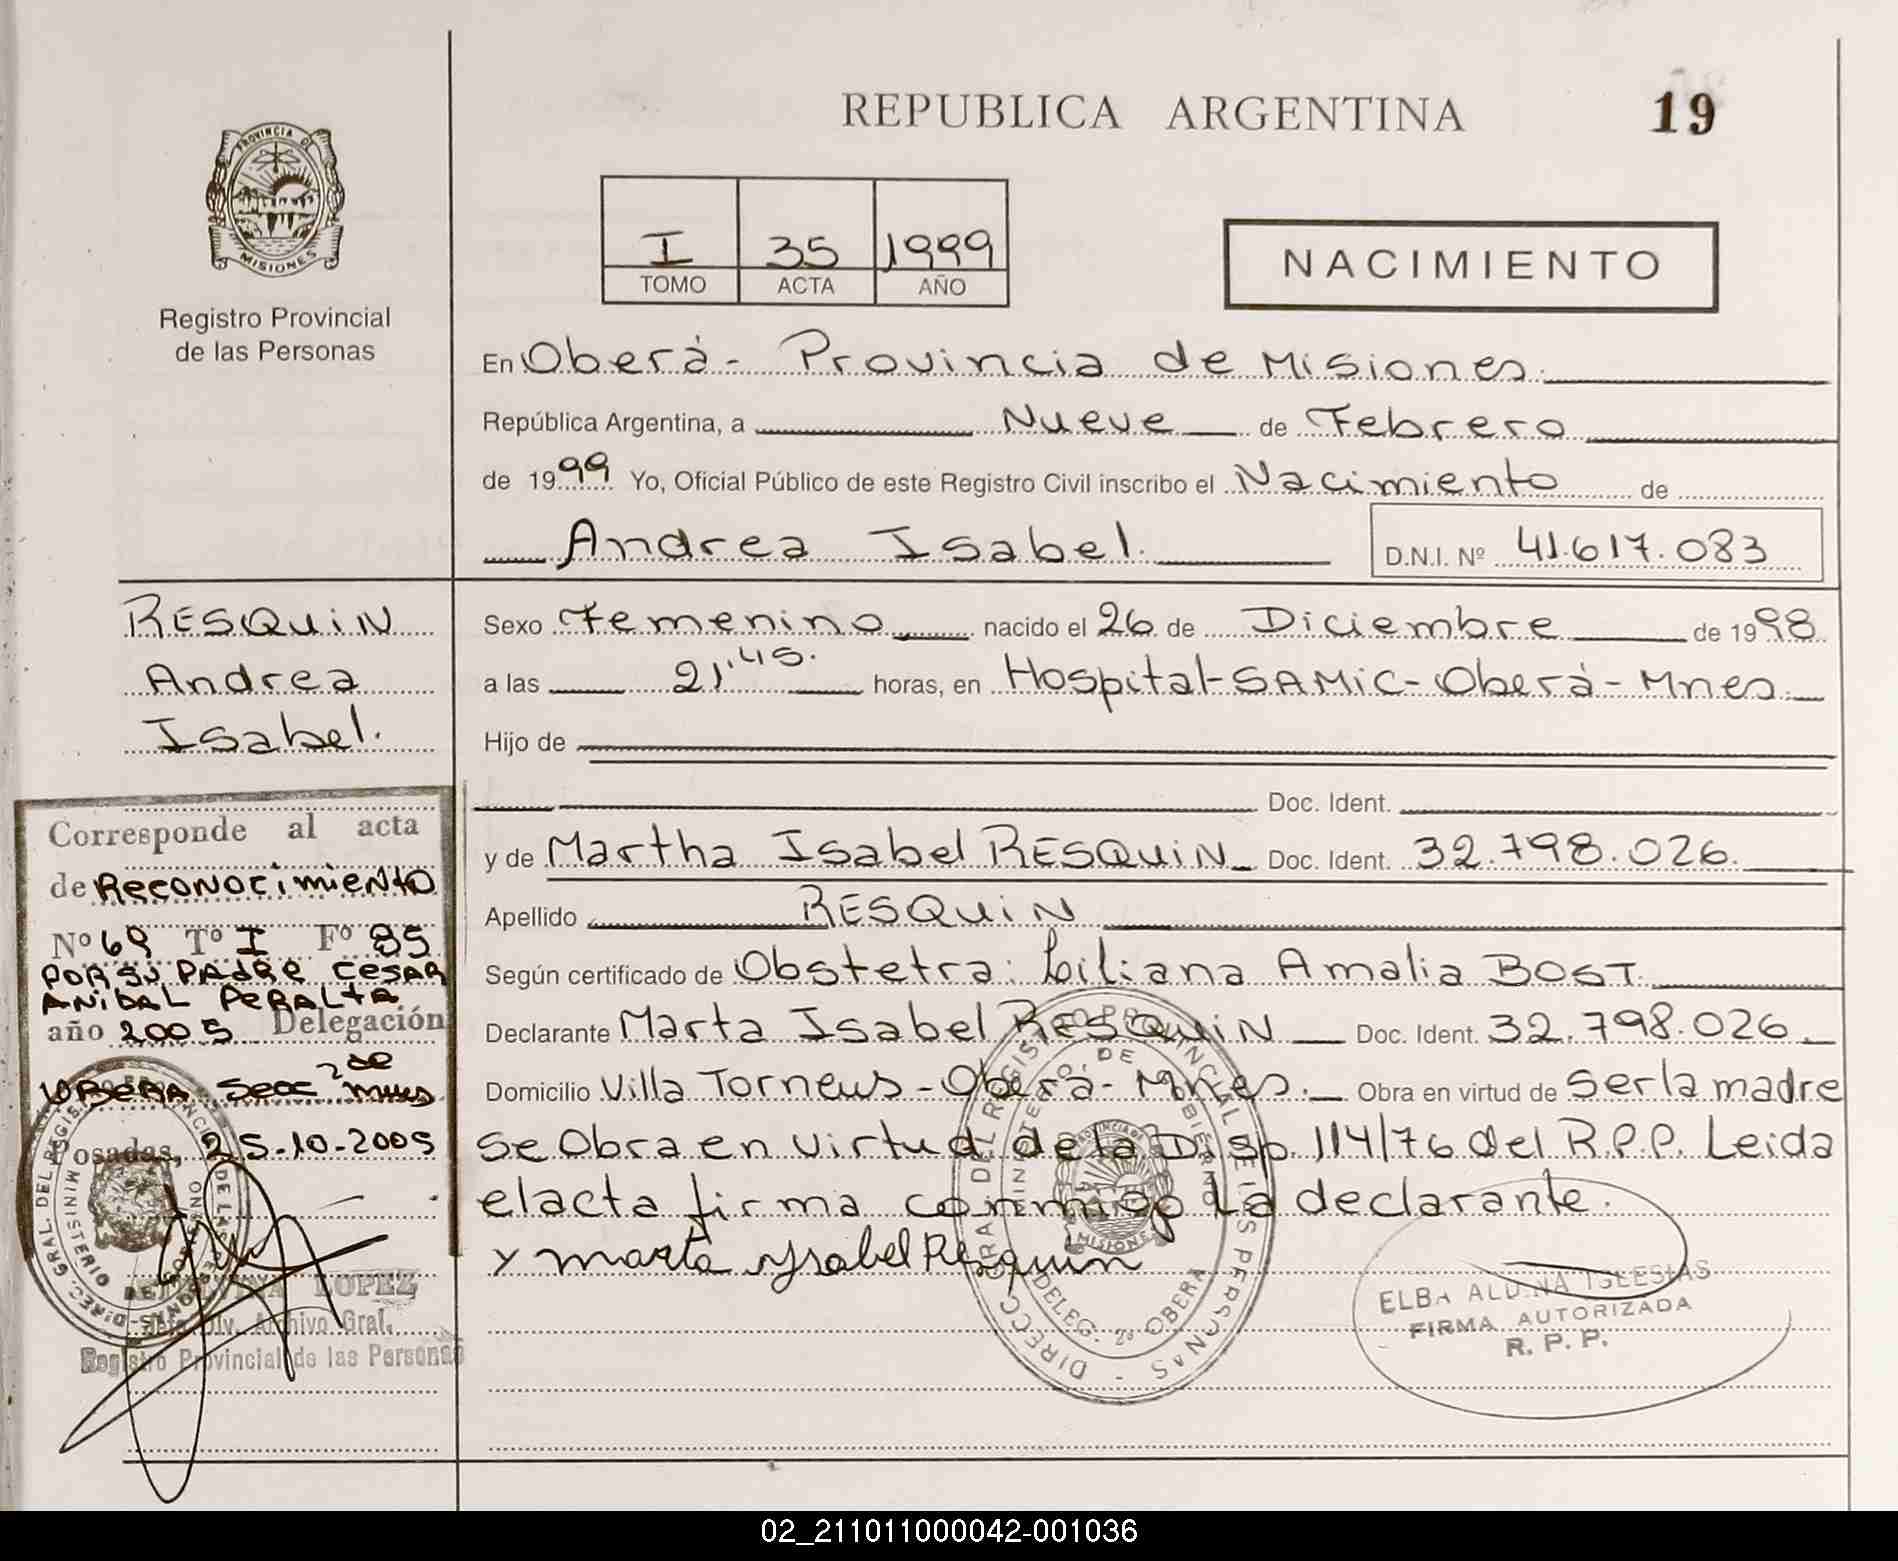 REPUBLICA ARGENTINA
19
PROVINCIA DE
MISIONES
Registro Provincial
de las Personas
I 35 1999
TOMO ACTA AÑO
NACIMIENTO
En Oberá - Provincia de Misiones.
República Argentina, a Nueve de Febrero
de 1999 Yo, Oficial Público de este Registro Civil inscribo el Nacimiento de
Andrea Isabel. D.N.I. Nº 41.617.083
RESQUIN
Andrea
Isabel.
Sexo Femenino nacido el 26 de Diciembre de 1998
a las 21,45. horas, en Hospital - SAMIC - Oberá - Mnes.
Hijo de
Doc. Ident.
y de Martha Isabel RESQUIN Doc. Ident. 32.798.026.
Apellido RESQUIN
Según certificado de Obstetra: Liliana Amalia BOST.
Declarante Marta Isabel RESQUIN Doc. Ident. 32.798.026
Domicilio Villa Torneus - Oberá - Mnes. Obra en virtud de Ser la madre
Se Obra en virtud de la Disp. 114/76 del R.P.P. Leida
el acta firma conmigo La declarante.
y marta ysabel Resquin
Corresponde al acta
de Reconocimiento
Nº 69 Tº I Fº 85
POR SU PADRE CESAR
ANIBAL PERALTA
año 2005 Delegación
OBERA Secc 2da mnes
Posadas, 25-10-2005
LOPEZ
Jefa Div. Archivo Gral.
Registro Provincial de las Personas
DIRECC. GRAL. DEL REGISTRO PROVINCIAL DE LAS PERSONAS -
MINISTERIO DE GOBIERNO
PROVINCIA DE
MISIONES
DELEG. 2ª OBERA
DIREC. GRAL. DEL REGIS. PROVINCIAL DE LAS PERSONAS -
MINISTERIO DE GOBIERNO
ELBA ALDINA IGLESIAS
FIRMA AUTORIZADA
R. P. P.
02_211011000042-001036